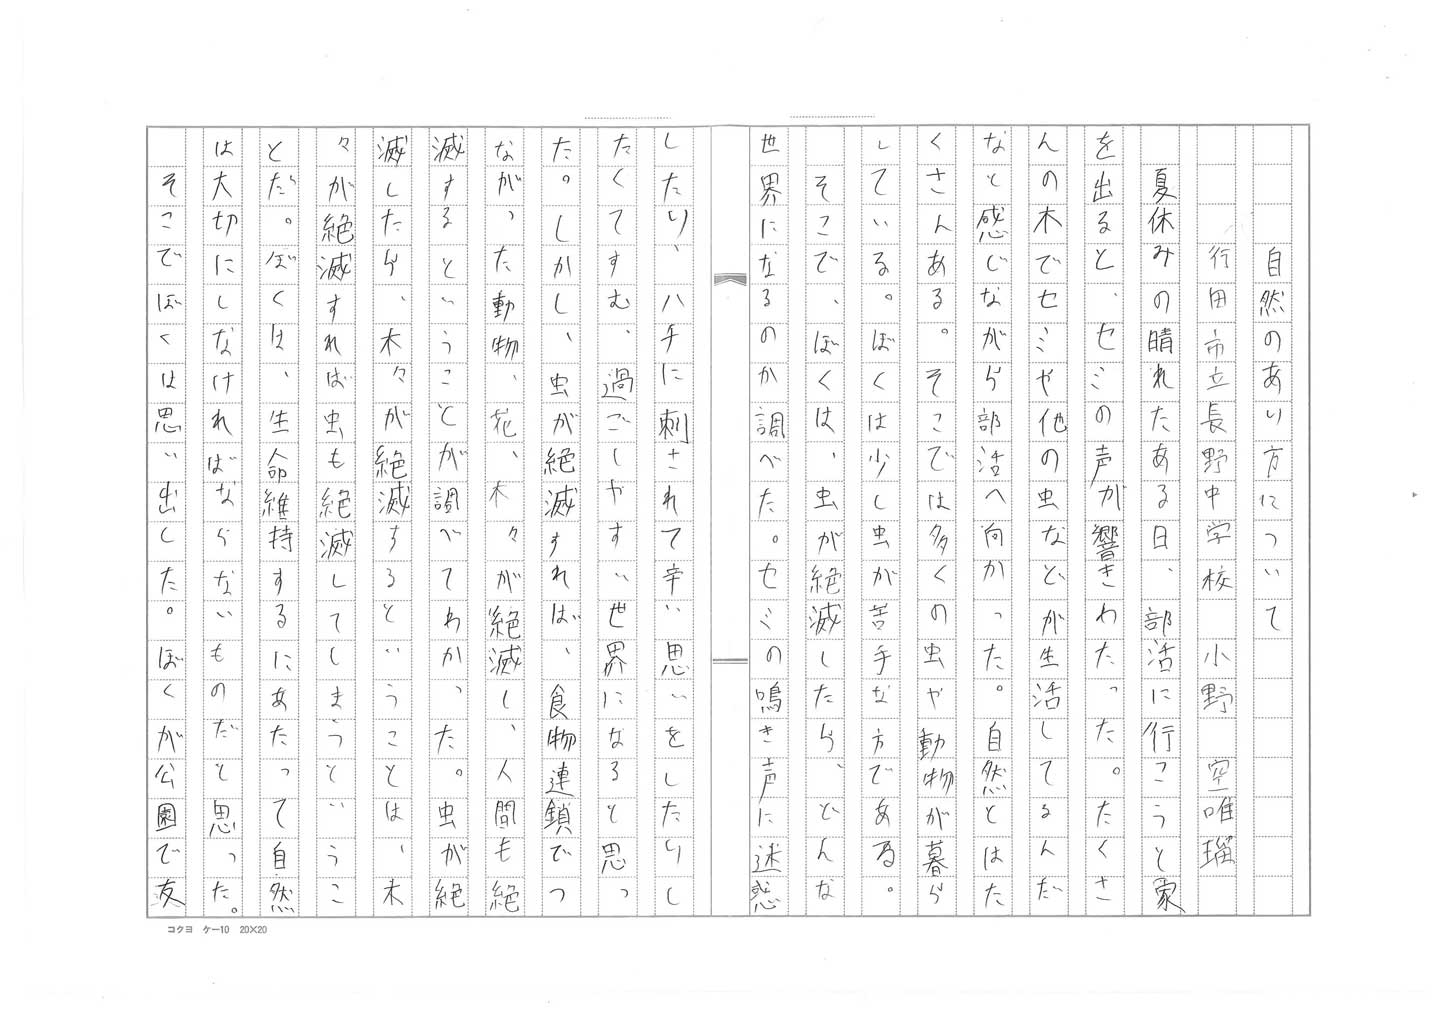 自然のあり方について
行田市立長野中学校 小野 空唯瑠
夏休みの晴れたある日、部活に行こうと家
を出ると、セミの声が響きわたった。たくさ
んの木でセミや他の虫などが生活してるんだ
なと感じながら部活へ向かった。自然とはた
くさんある。そこでは多くの虫や動物が暮ら
している。ぼくは少し虫が苦手な方である。
そこで、ぼくは、虫が絶滅したら、どんな
世界になるのか調べた。セミの鳴き声に迷惑
したり、ハチに刺されて辛い思いをしたりし
たくてすむ、過ごしやすい世界になると思っ
た。しかし、虫が絶滅すれば、食物連鎖でつ
ながった動物、花、木々が絶滅し、人間も絶
滅するということが調べてわかった。虫が絶
滅したら、木々が絶滅するということは、木
々が絶滅すれば虫も絶滅してしまうというこ
とだ。ぼくは、生命維持するにあたって自然
は大切にしなければならないものだと思った。
そこでぼくは思い出した。ぼくが公園で友
コクヨ ケー10 20×20